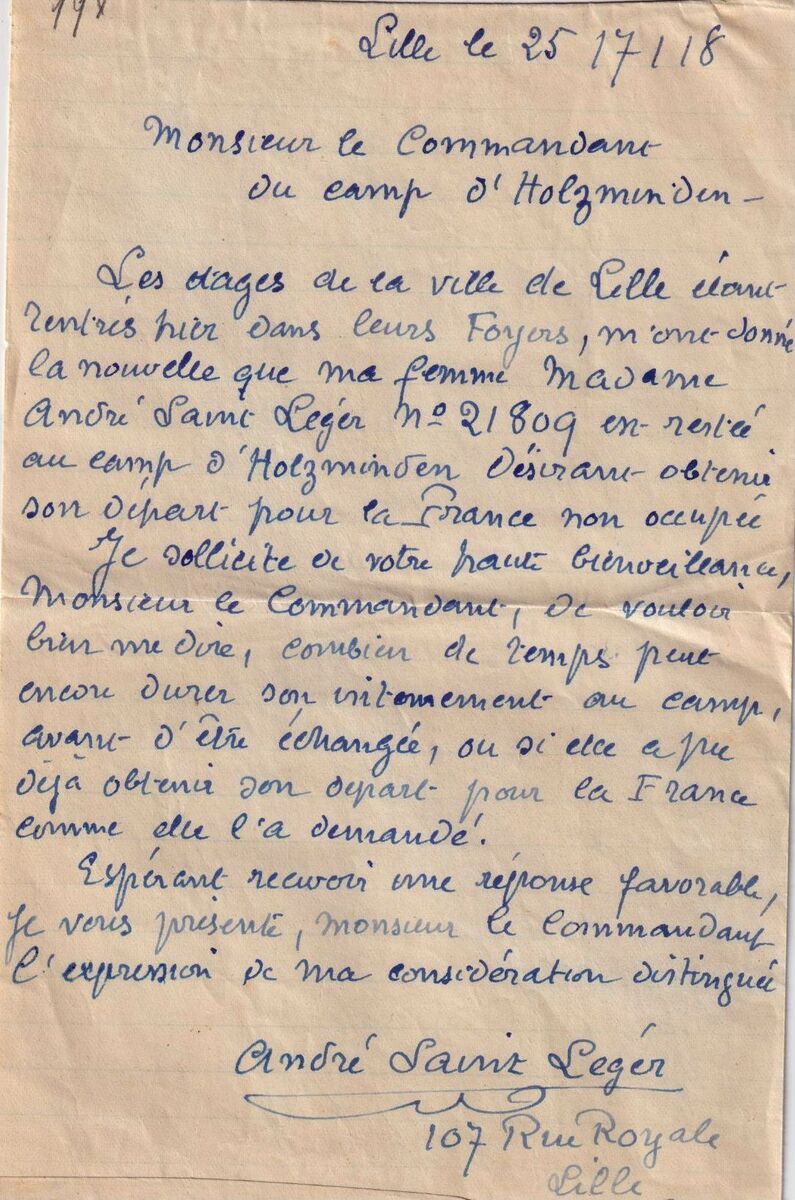 Lille le 25 / 7 / 18
Monsieur le Commandant
du camp d'Holzminden -
Les otages de la ville de Lille étant
rentrés hier dans leurs Foyers, m'ont donné
la nouvelle que ma femme Madame
André Saint Legér No 21809 est restée
au camp d'Holzminden Désirant obtenir
son départ pour la France non occupée
Je sollicite de votre haute bienveillance,
Monsieur le Commandant, de vouloir
bien me dire, combien de temps peut
encore durer son internement au camp,
avant d'être échangée, ou si elle a pu
déjà obtenir son départ pour la France
comme elle l'a demandé.
Espérant recevoir une réponse favorable,
je vous présente, Monsieur le Commandant
l'expression de ma considération distinguée
André Saint Legér
107 Rue Royale
Lille